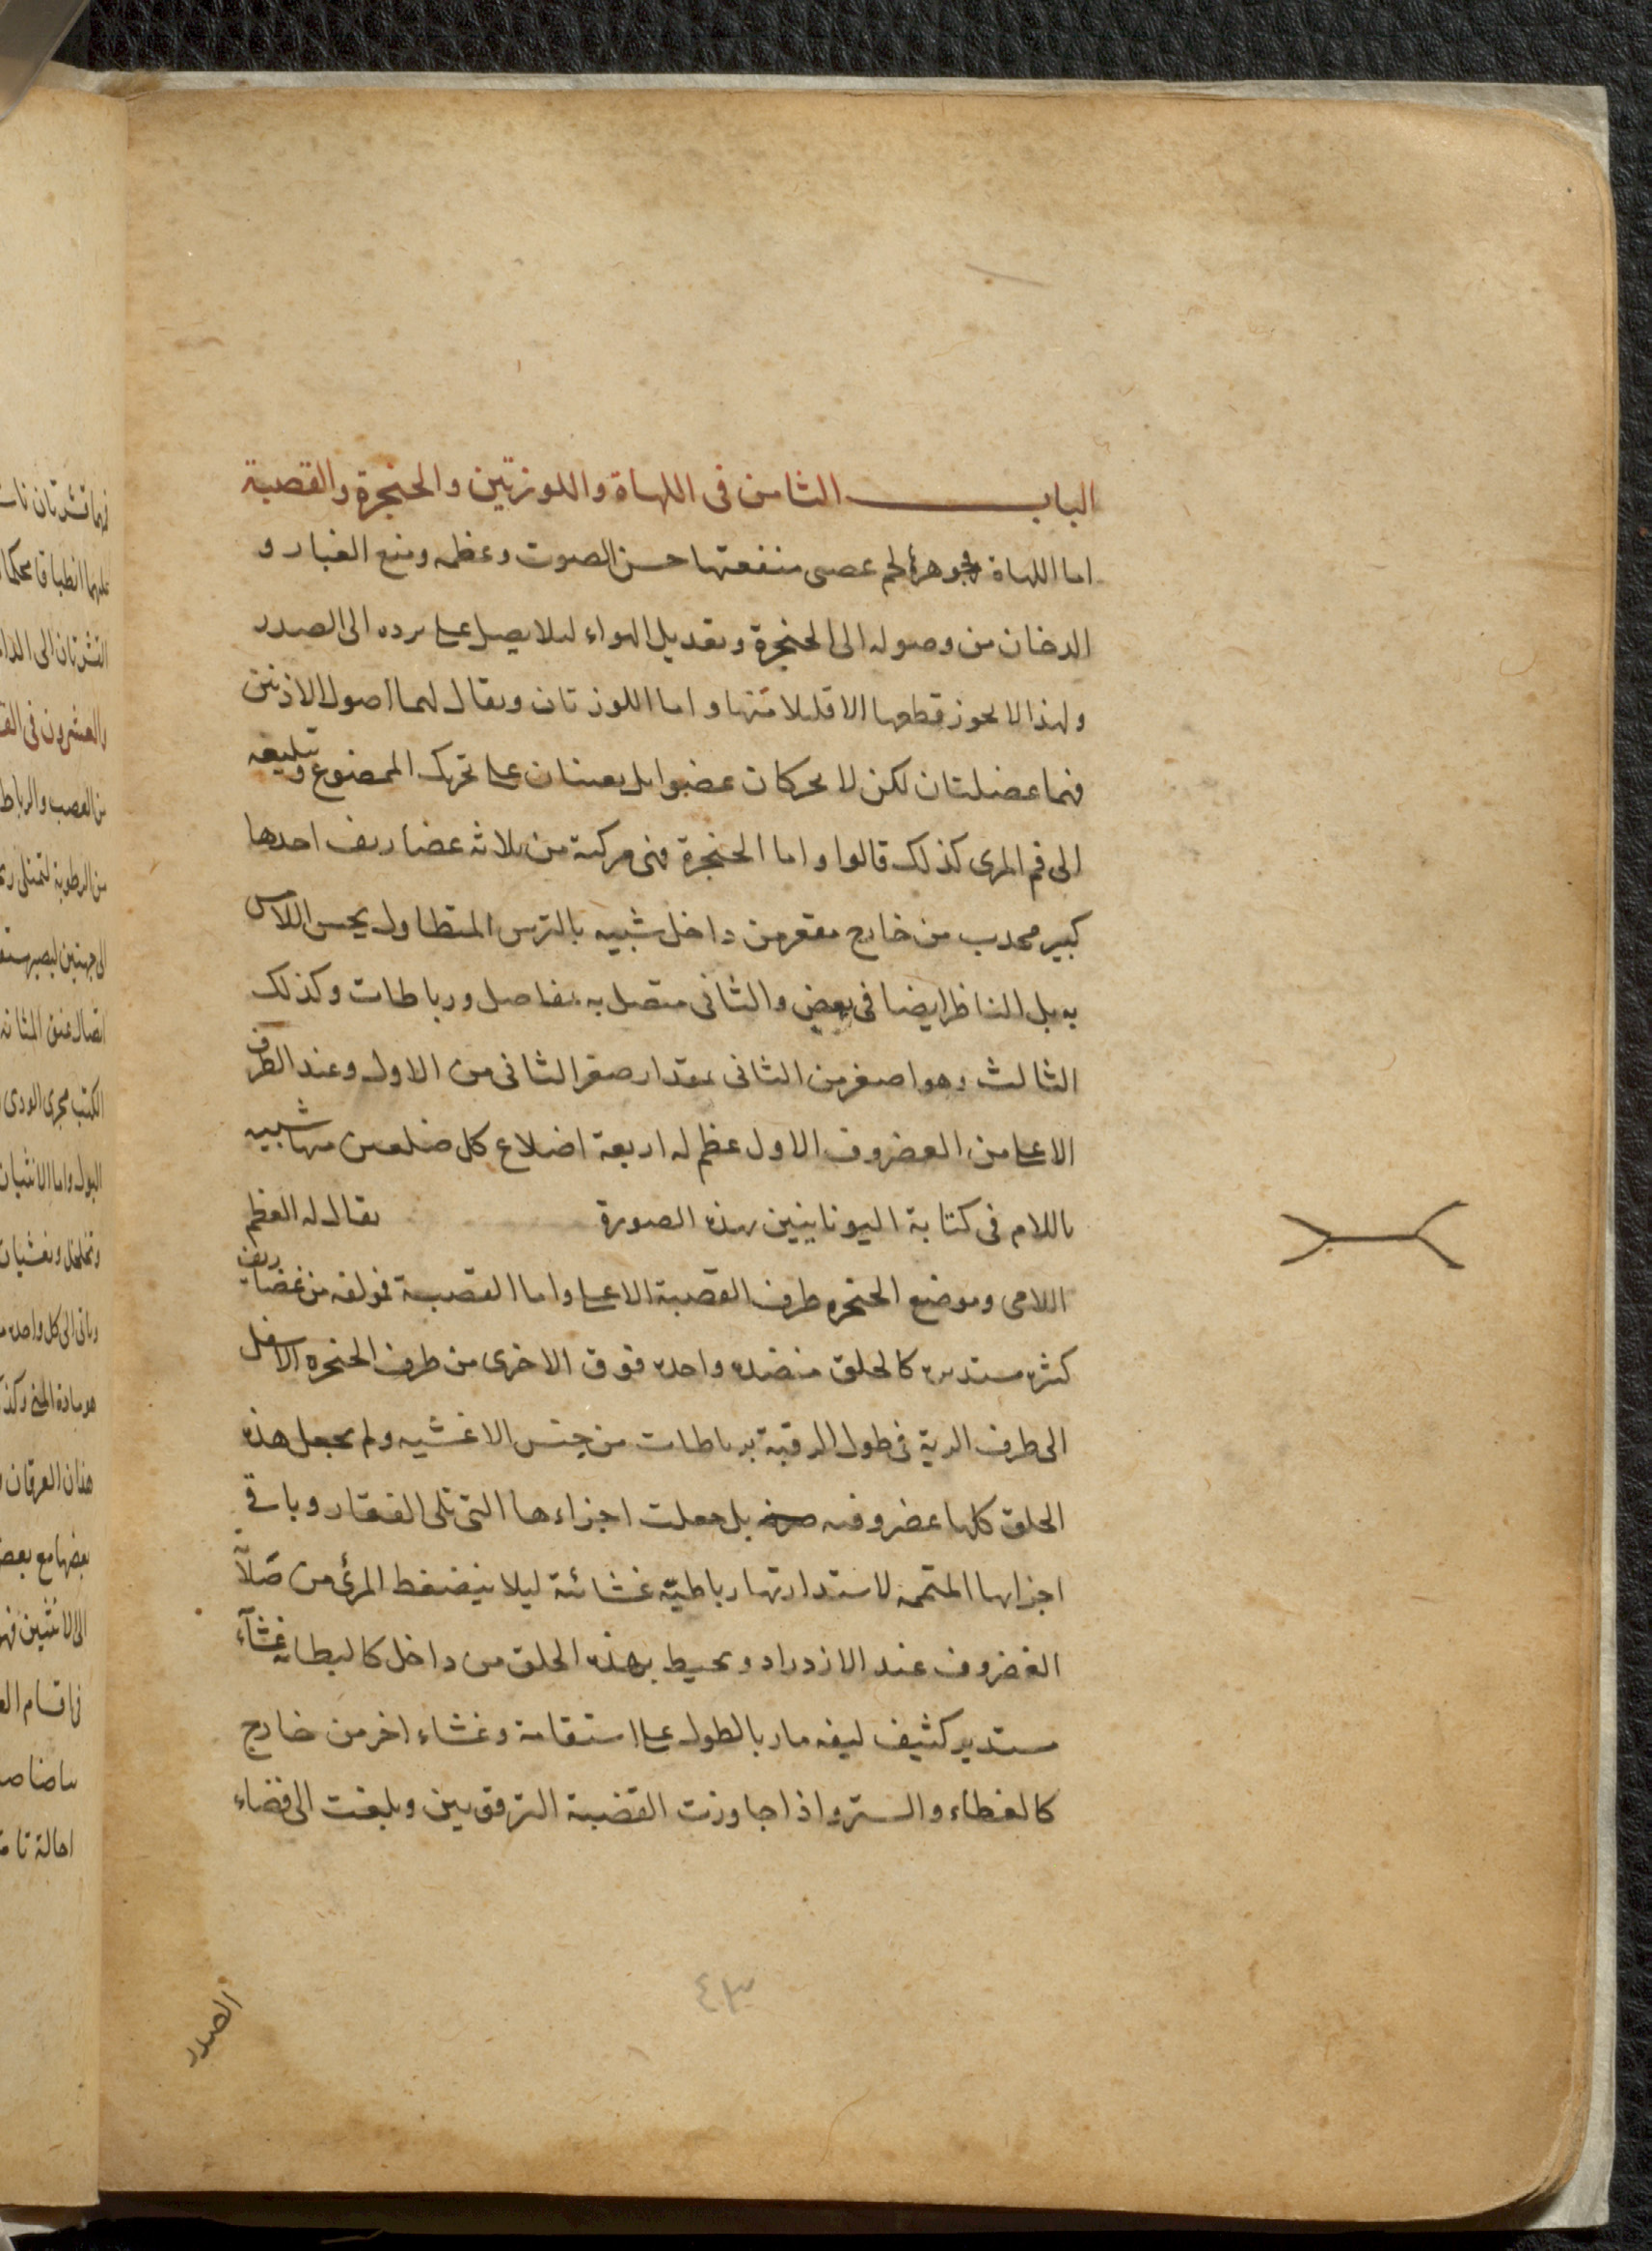 الباب الثامن فى اللهاة واللوزتين والحنجرة والقصبة
اما اللهاة فجوهرها لحم عصبى منفعتها حسن الصوت وعظمه ومنع الغبار و
الدخان من وصوله الى الحنجرة وتعديل الهواء لئلا يصل على برده الى الصدر
ولهذا لا يجوز قطعها الا قليلا منها واما اللوزتان ويقال لهما اصول الاذنين
فهما عضلتان لكن لا يحركان عضوا بل يعينان على تحريك الممضوغ وتبليعه
الى فم المرى كذلك قالوا واما الحنجرة فهى مركبة من ثلاثة غضاريف احدها
كبير محدب من خارج مقعر من داخل شبيه بالترس المتطاول يحس اللامس
به بل الناظر ايضا فى بعض والثانى متصل به بمفاصل ورباطات وكذلك
الثالث وهو اصغر من الثانى بمقدار صغر الثانى من الاول وعند الطرف
الاعلى من الغضروف الاول عظم له اربعة اضلاع كل ضلعين منها شبيه
باللام فى كتابة اليونانيين بهذه الصورة يقال له العظم
اللامى وموضع الحنجره طرف القصبة الاعلى واما القصبة فمولفه من غضاريف
كثيره مستديره كالحلق منضده واحده فوق الاخرى من طرف الحنجره الاسفل
الى طرف الرية فى طول الرقبة برباطات من جنس الاغشيه ولم يجعل هذه
الحلق كلها غضروفيه بل جعلت اجزاءها التى تلى الفقار وباقى
اجزايها المتممه لاستدارتها رباطيّه غشائية ليلا ينضغط المرئ من
الغضروف عند الازدراد ويحيط بهذه الحلق من داخل كالبطانه غشآء
مستدير كثيف ليفه مار بالطول على استقامة وغشاء اخر من خارج
كالغطاء والستر واذا جاوزت القضبة الترقوتين وبلغت الى فضاء
الصدر
٤٣